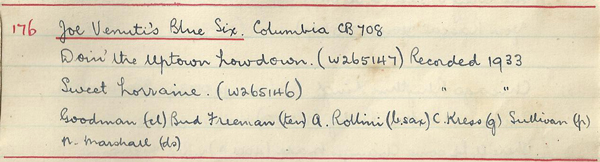 176 Joe Venuti's Blue Six. Columbia CB 708
Doin' the Uptown Lowdown. (W265147) Recorded 1933
Sweet Lorraine. (W265146) " "
Goodman (cl) Bud Freeman (ten) A. Rollini (b.sax) C. Kress (g) Sullivan (p)
N. Marshall (ds)